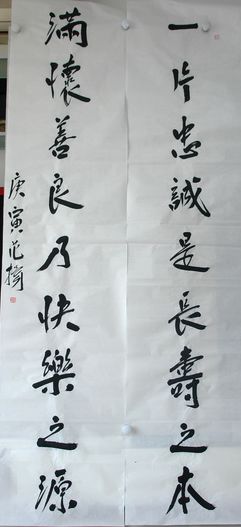 一片忠誠是長壽之本
滿懷善良乃快樂之源
庚寅